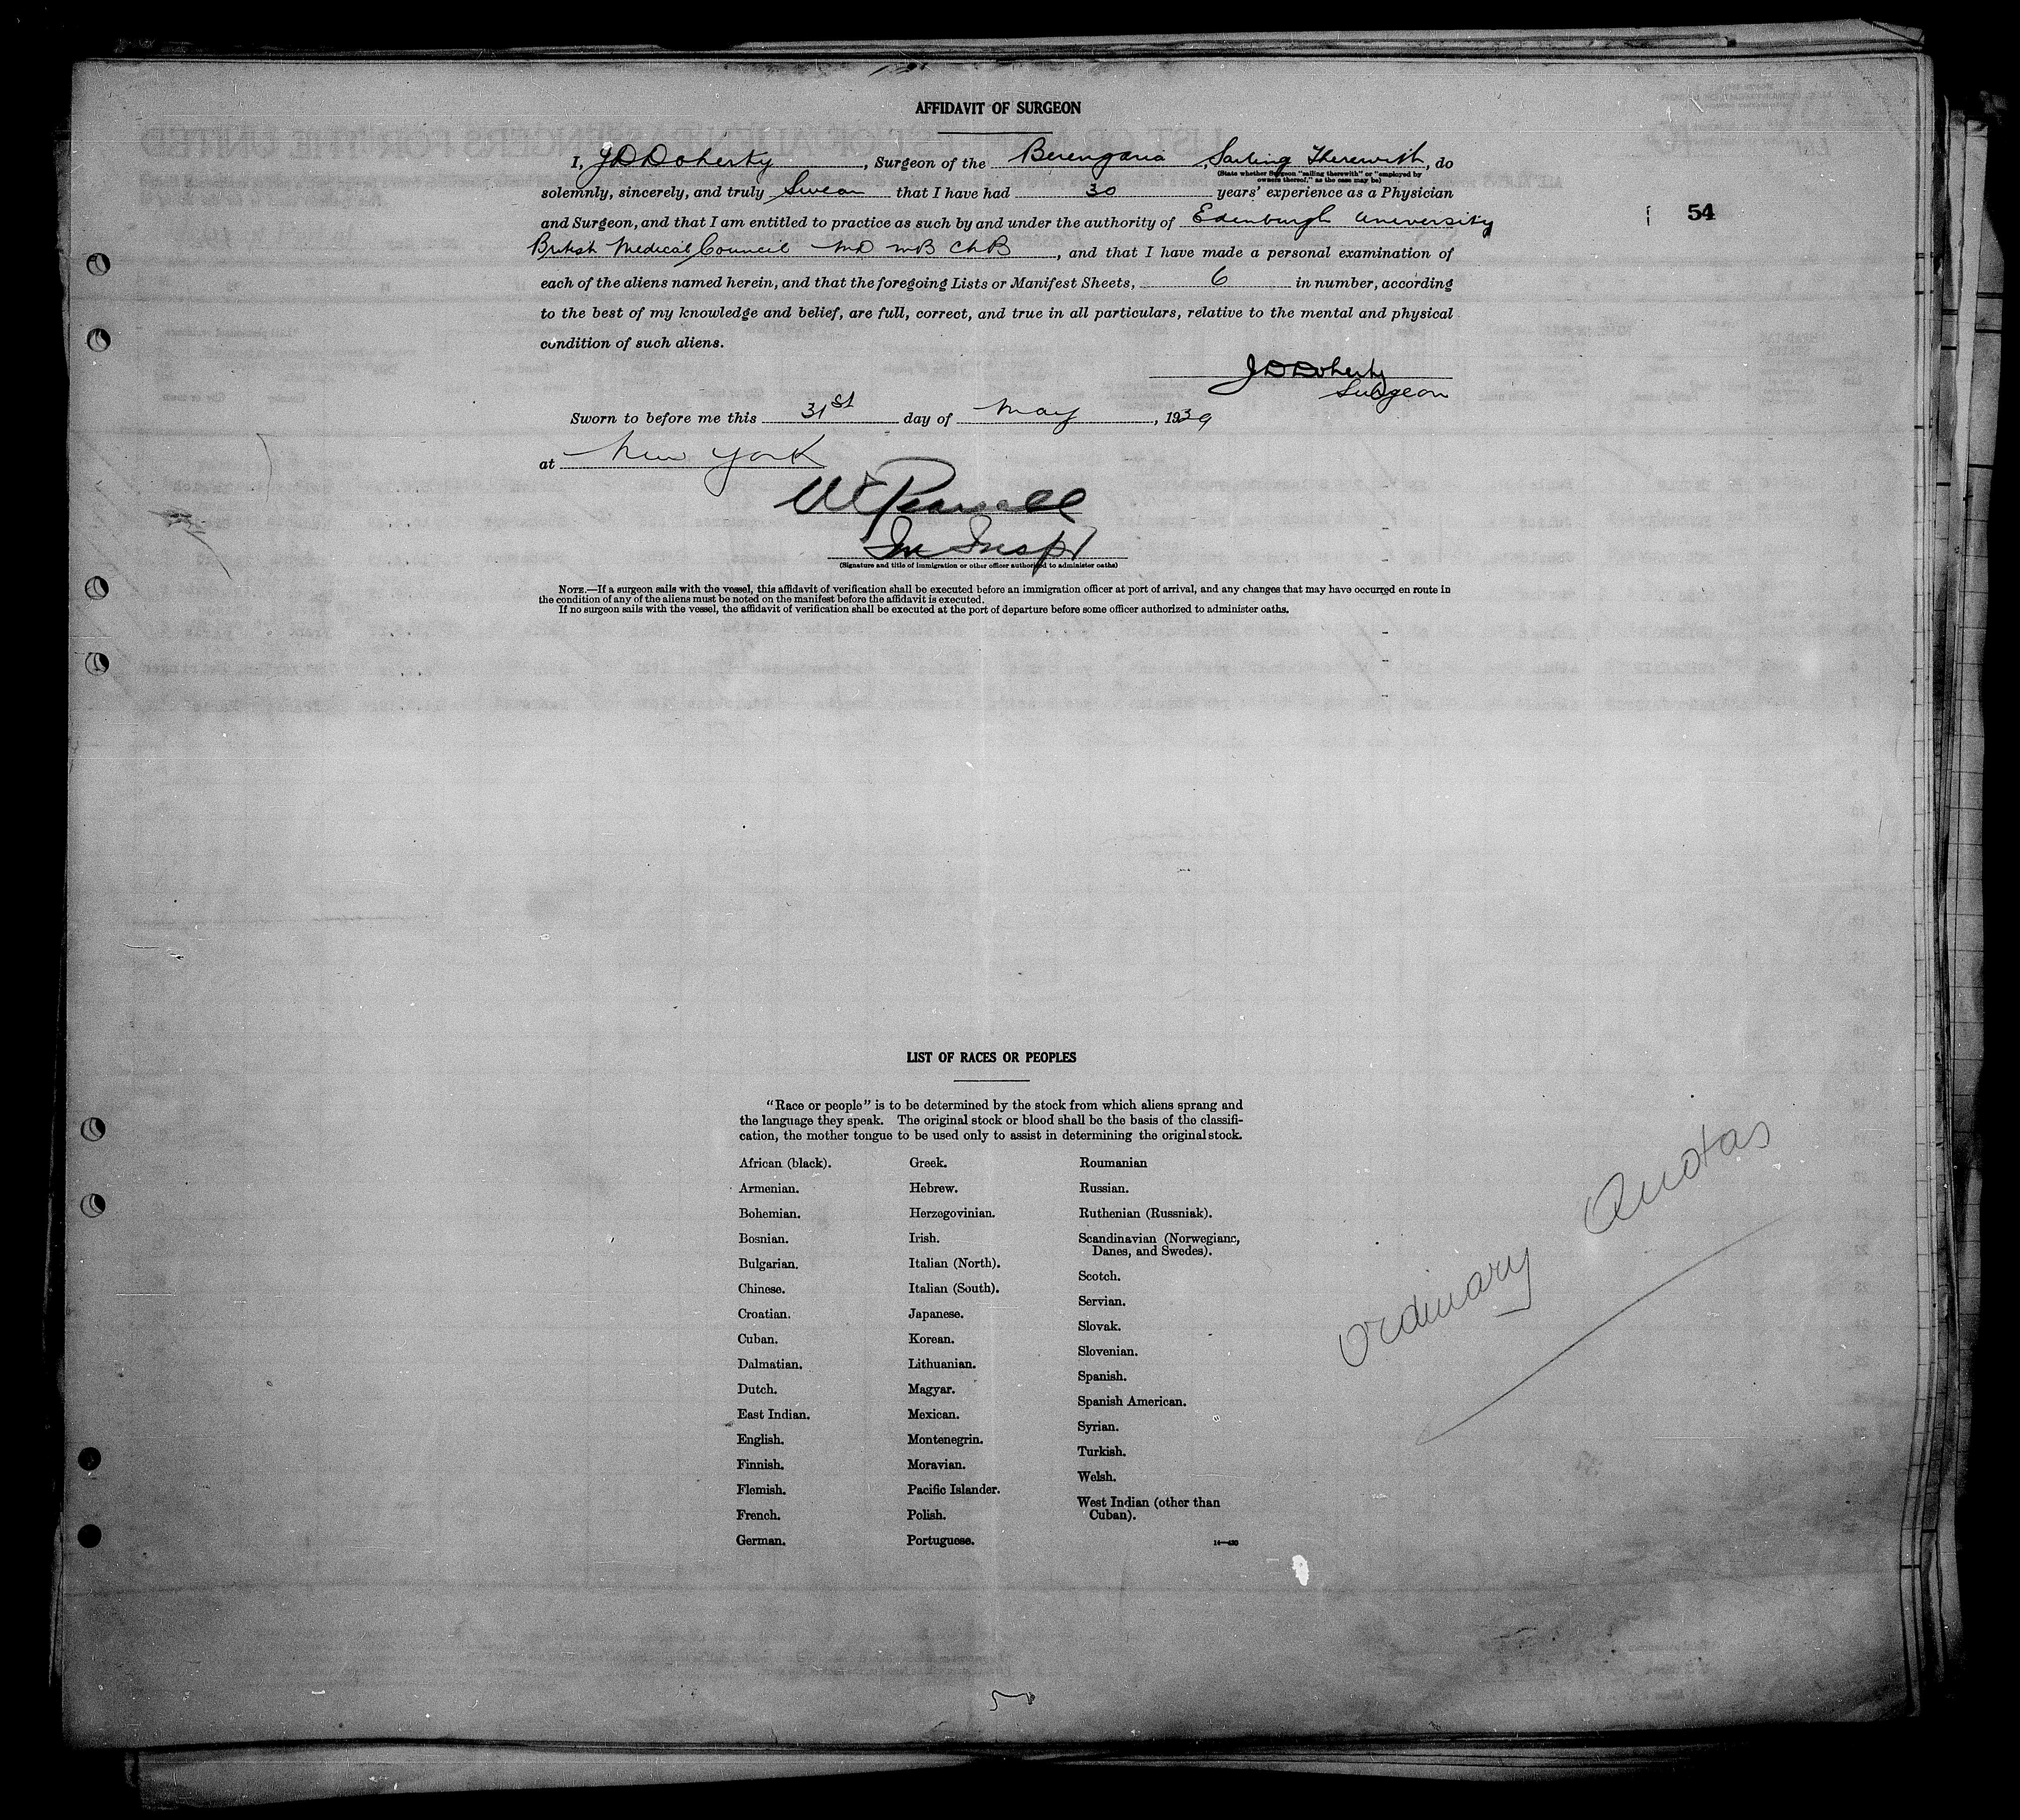 AFFIDAVIT OF SURGEON
I, J D Doherty, Surgeon of the Berengaria, Sailing Therewith, do
(State whether Surgeon "sailing therewith" or "employed by
owners thereof," as the case may be)
solemnly, sincerely, and truly Swear that I have had 30 years' experience as a Physician
and Surgeon, and that I am entitled to practice as such by and under the authority of Edinburgh University
54
British Medical Council MD MB ChB, and that I have made a personal examination of
each of the aliens named herein, and that the foregoing Lists or Manifest Sheets, 6 in number, according
to the best of my knowledge and belief, are full, correct, and true in all particulars, relative to the mental and physical
condition of such aliens.
J D Doherty
Surgeon
Sworn to before me this 31st day of May, 1939
at New York
Im Inspr
(Signature and title of immigration or other officer authorized to administer oaths)
NOTE.—If a surgeon sails with the vessel, this affidavit of verification shall be executed before an immigration officer at port of arrival, and any changes that may have occurred en route in
the condition of any of the aliens must be noted on the manifest before the affidavit is executed.
If no surgeon sails with the vessel, the affidavit of verification shall be executed at the port of departure before some officer authorized to administer oaths.
LIST OF RACES OR PEOPLES
"Race or people" is to be determined by the stock from which aliens sprang and
the language they speak. The original stock or blood shall be the basis of the classifi-
cation, the mother tongue to be used only to assist in determining the original stock.
African (black).
Armenian.
Bohemian.
Bosnian.
Bulgarian.
Chinese.
Croatian.
Cuban.
Dalmatian.
Dutch.
East Indian.
English.
Finnish.
Flemish.
French.
German.
Greek.
Hebrew.
Herzegovinian.
Irish.
Italian (North).
Italian (South).
Japanese.
Korean.
Lithuanian.
Magyar.
Mexican.
Montenegrin.
Moravian.
Pacific Islander.
Polish.
Portuguese.
Roumanian
Russian.
Ruthenian (Russniak).
Scandinavian (Norwegians,
Danes, and Swedes).
Scotch.
Servian.
Slovak.
Slovenian.
Spanish.
Spanish American.
Syrian.
Turkish.
Welsh.
West Indian (other than
Cuban).
Ordinary Quotas